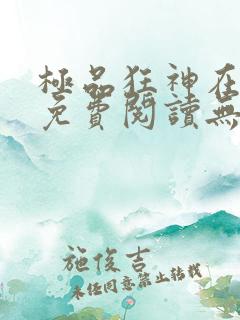 極品狂神在
免費閱讀無
施俊吉
未经同意禁止转载